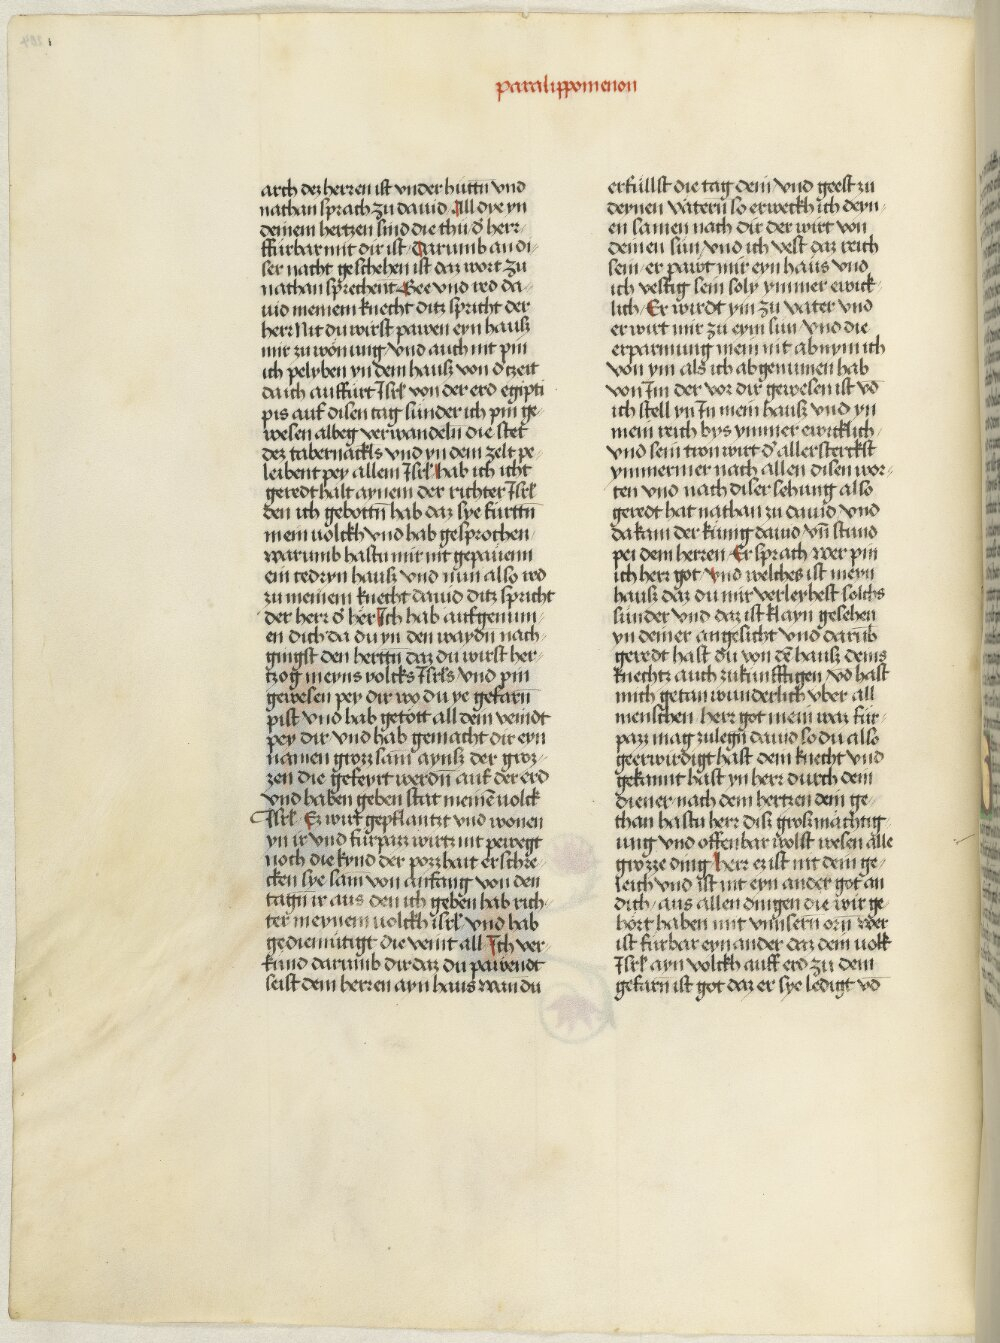 paralippomenon
arch dez herren ist vnder hüttn̄ vnd
nathan sprach zu dauid All dye yn
deinem hertzen sind die thu d̓ herr⸗
ffürbar mit dir ist Darumb an di⸗
ser nacht geschehen ist daz wort zu
nathan sprechent Gee vnd red da⸗
uid meinem knecht ditz spricht der
herr Nit du wirst pawen eyn hausz
mir zu wonung vnd auch nit pin
ich pelyben yn dem hausz von d̓ tzeit
da ich auffürt Isrl̄ von der erd egipti
pis auf disen tag sunder ich pin ge⸗
wesen albeg verwandeln̄ die stet
dez tabernackls vnd yn dem zelt pe⸗
leibent pey allem Isrl̄ hab ich icht
geredt halt aynem der richter Isrl̄
den ich gebottn̄ hab daz sye fürttn̄
mein uolckh vnd hab gesprochen
warumb hastu mir nit gepauenn
ein cedryn hausz vnd nun also red
zu meinem knecht dauid ditz spricht
der herr d̓ her Ich hab aufgenum⸗
en dich da du yn den waydn̄ nach⸗
gingst den herttn̄ daz du wirst her⸗
tzog meyns volcks Isrls vnd pin
gewesen pey dir wo du ye gefarn̄
pist vnd hab getött all dein veindt
pey dir vnd hab gemacht dir eyn
namen grozz sam aynsz der groz⸗
zen die gefeyrt werdn̄ auf der erd
vnd haben geben stat meinē uolck
Isrl̄ Ez wirt gepflantzt vnd wonen
yn ir vnd fürpazz wirtz nit pewegt
noch die kynd der pozzhait erschre⸗
cken sye sam von anfang von den
tagn̄ ir aus den ich geben hab rich⸗
ter meynem uolckh isrl̄ vnd hab
gediemütigt die veint all Ich ver⸗
kund darumb dir daz du pawendt
seist dem herren ayn haus wan du
erfüllst die tag dein vnd geest zu
deynen vätern̄ so erweckh ich deyn⸗
en samen nach dir der wirt von
deinen sün vnd ich vest daz reich
sein er pawt mir eyn haus vnd
ich vestig sein soly ymmer ewick⸗
lich Er wirdt ym zu vater vnd
er wirt mir zu eym sun vnd die
erparmung mein nit abnym ich
von ym als ich abgenumen hab
von Im der vor dir gewesen ist vd̄
ich stell yn In mein hausz vnd yn
mein reich bys ymmer ewicklich
vnd sein tron wirt d̓ allersterckst
ymmermer nach allen disen wor⸗
ten vnd nach diser sehung also
geredt hat nathan zu dauid vnd
da kam der kunig dauid vn̄ stund
pei dem herren Er sprach wer pin
ich herr got vnd welches ist meyn
hausz daz du mir verleyhest solchs
sunder vnd daz ist klayn gesehen
yn deiner angesicht vnd darūb
geredt hast du von dē hausz deins
knechtz auch zukunfftigen vd hast
mich getan wunderlich vber all
menschen herr got mein waz für⸗
pazz mag zulegn̄ dauid so du also
geerwirdigt hast dein knecht vnd
gekannt hast yn herr durch dein
diener nach dem hertzen dein ge⸗
than hastu herr disz groszmächtig⸗
iung vnd offenbar wolst wesen alle
grozze ding herr ez ist nit dein ge⸗
leich vnd ist nit eyn ander got an
dich aus allen dingen die wir ge⸗
hört haben mit vnnsern̄ orn̄ wer
ist fürbar eyn ander daz dem uolk
Isrl̄ ayn volckh auff erd zu dem
gefarn̄ ist got daz er sye ledigt vd̄